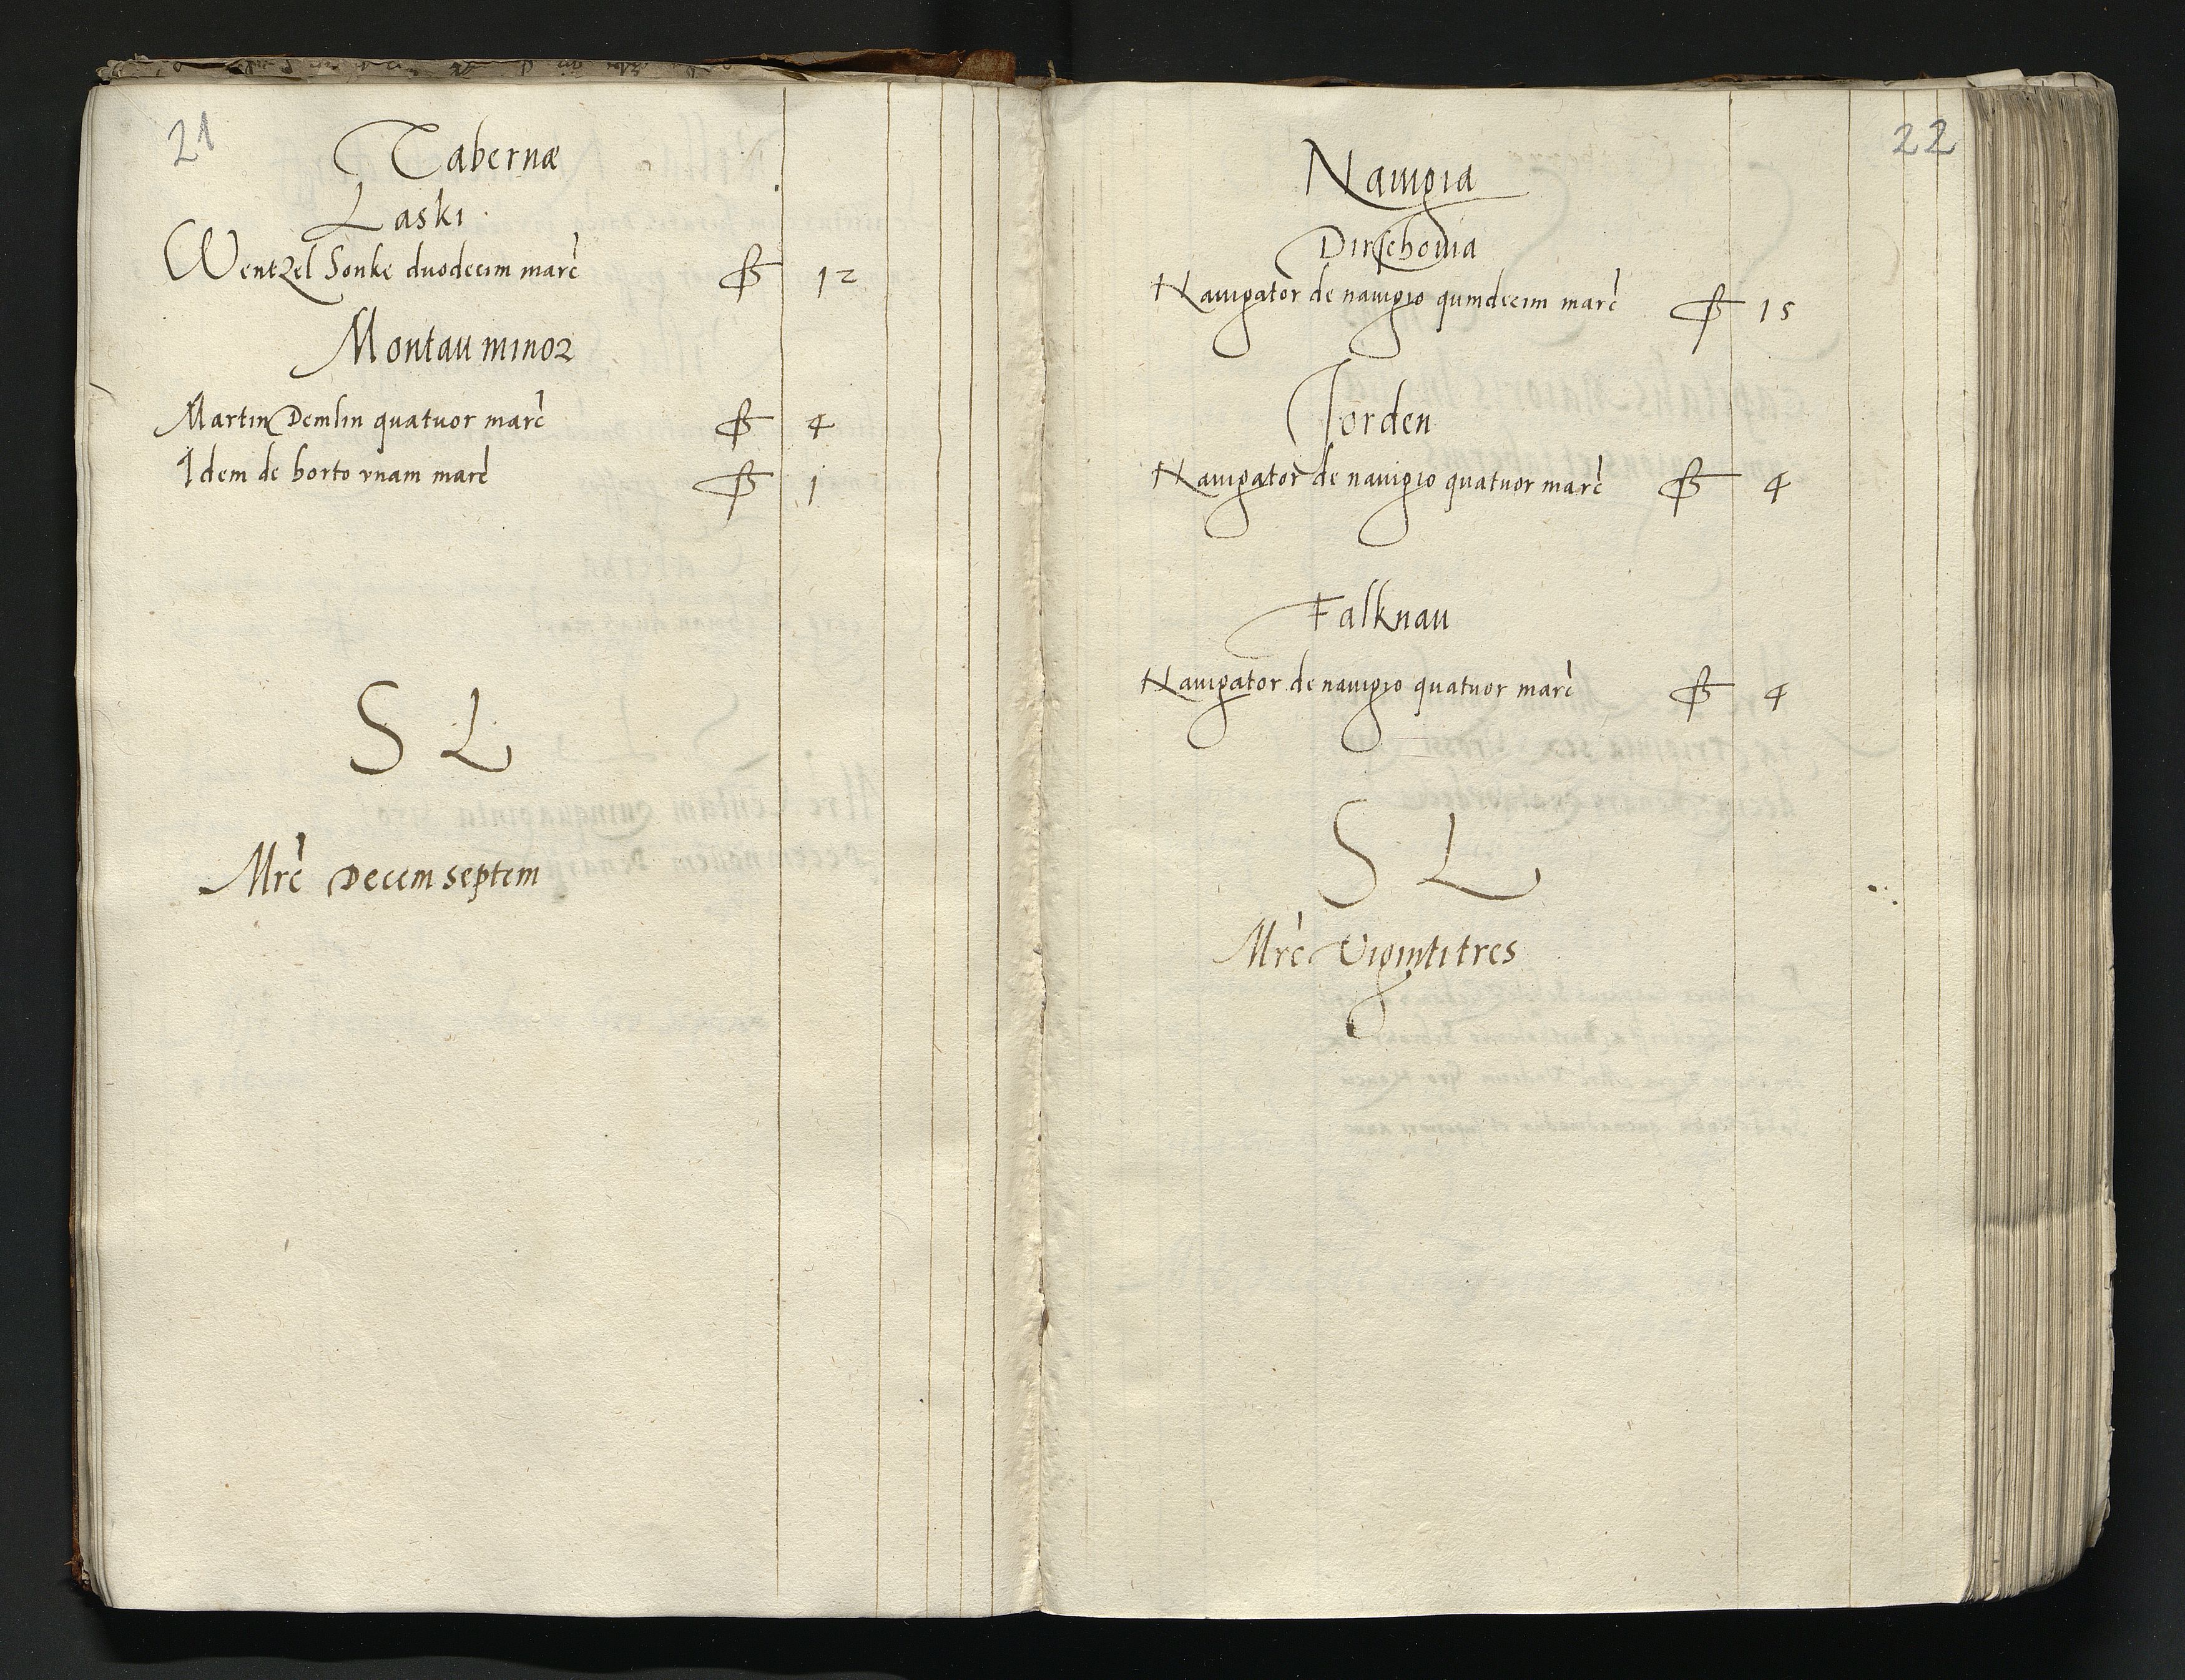 21
Tabernæ
Laski
Wentzel Sonke duodecim marc 12
Montau minor
Martin Demlin quatuor marc 4
Idem de horto vnam marc 1
S L
Mrc Decem septem
22
Nauigia
Dirschouia
Nauigator de nauigio quindecim marc 15
Jorden
Nauigator de nauigio quatuor marc 4
Falknau
Nauigator de nauigio quatuor marc 4
S L
Mrc Viginti tres